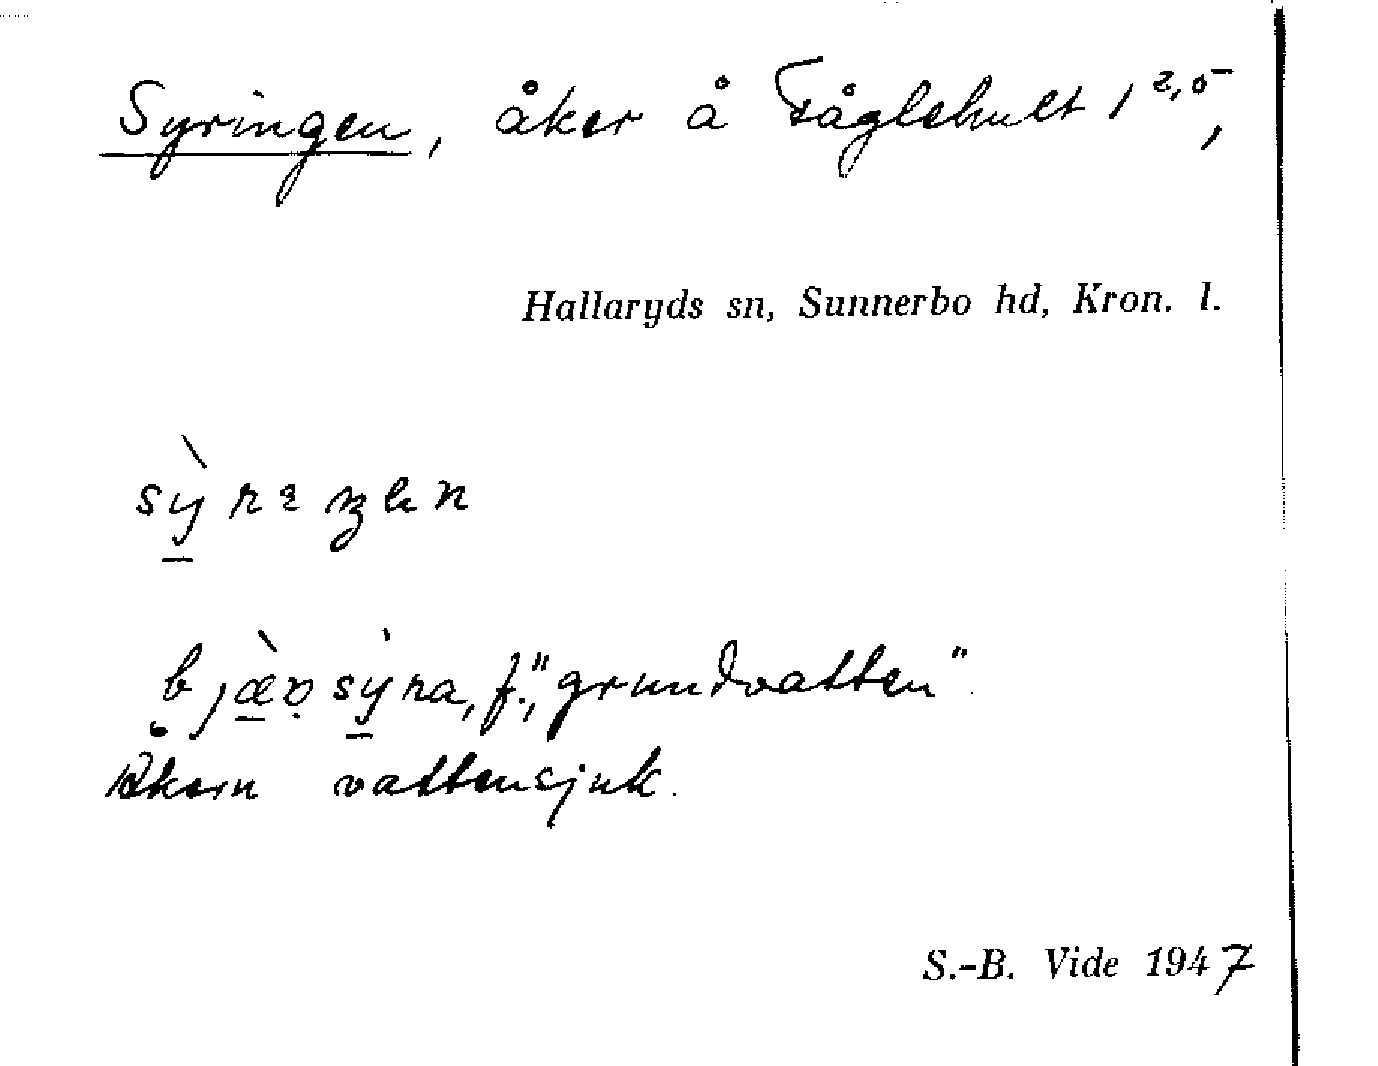 Syringen, åker å Fåglehult 1 2,5,
Hallaryds sn, Sunnerbo hd, Kron. l.
f., "grundvatten"
Åkern vattensjuk.
S.-B. Vide 1947